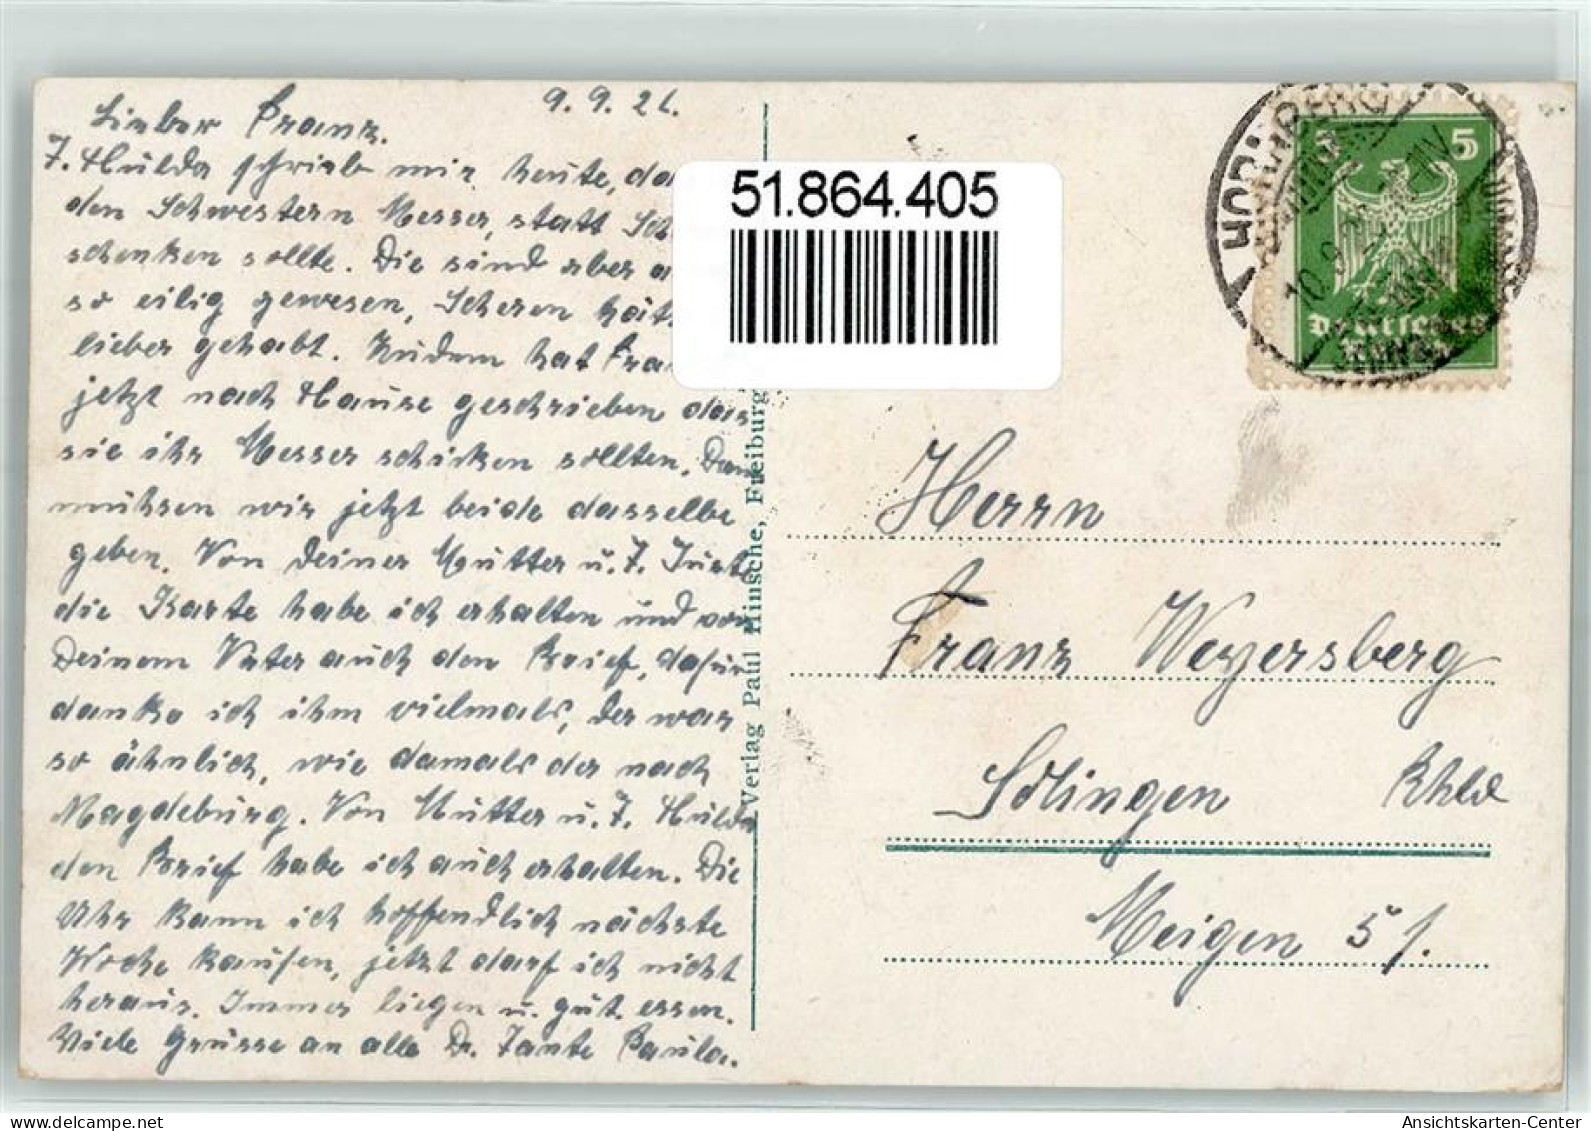 9. 9. 26.
Lieber Franz.
T. Hulda schrieb mir heute, da
den Schwestern Messer, statt Sch
schenken sollte. Die sind aber a
so eilig gewesen, Scheren hät
lieber gehabt. Zudem hat Fra
jetzt nach Hause geschrieben dass
sie ihr Messer schicken sollten. Dann
mühsen wir jetzt beide dasselbe
geben. Von Deiner Mutter u. T.
die Karte habe ich erhalten und von
Deinem Vater auch den Brief, dafür
danke ich ihm vielmals, der war
so ähnlich, wie damals der nach
Magdeburg. Von Mutter u. T. Hulda
den Brief habe ich auch erhalten. Die
Uhr kann ich hoffendlich nächste
Woche kaufen, jetzt darf ich nicht
heraus. Immer liegen u. gut essen.
Viele Grüsse an alle D. Tante Paula.
51.864.405
Verlag Paul Hinsche, Freiburg
5 5
Deutsches
Reich
10.9.
Herrn
Franz Weyersberg
Solingen Rhld
Meigen 51.
Ansichtskarten-Center